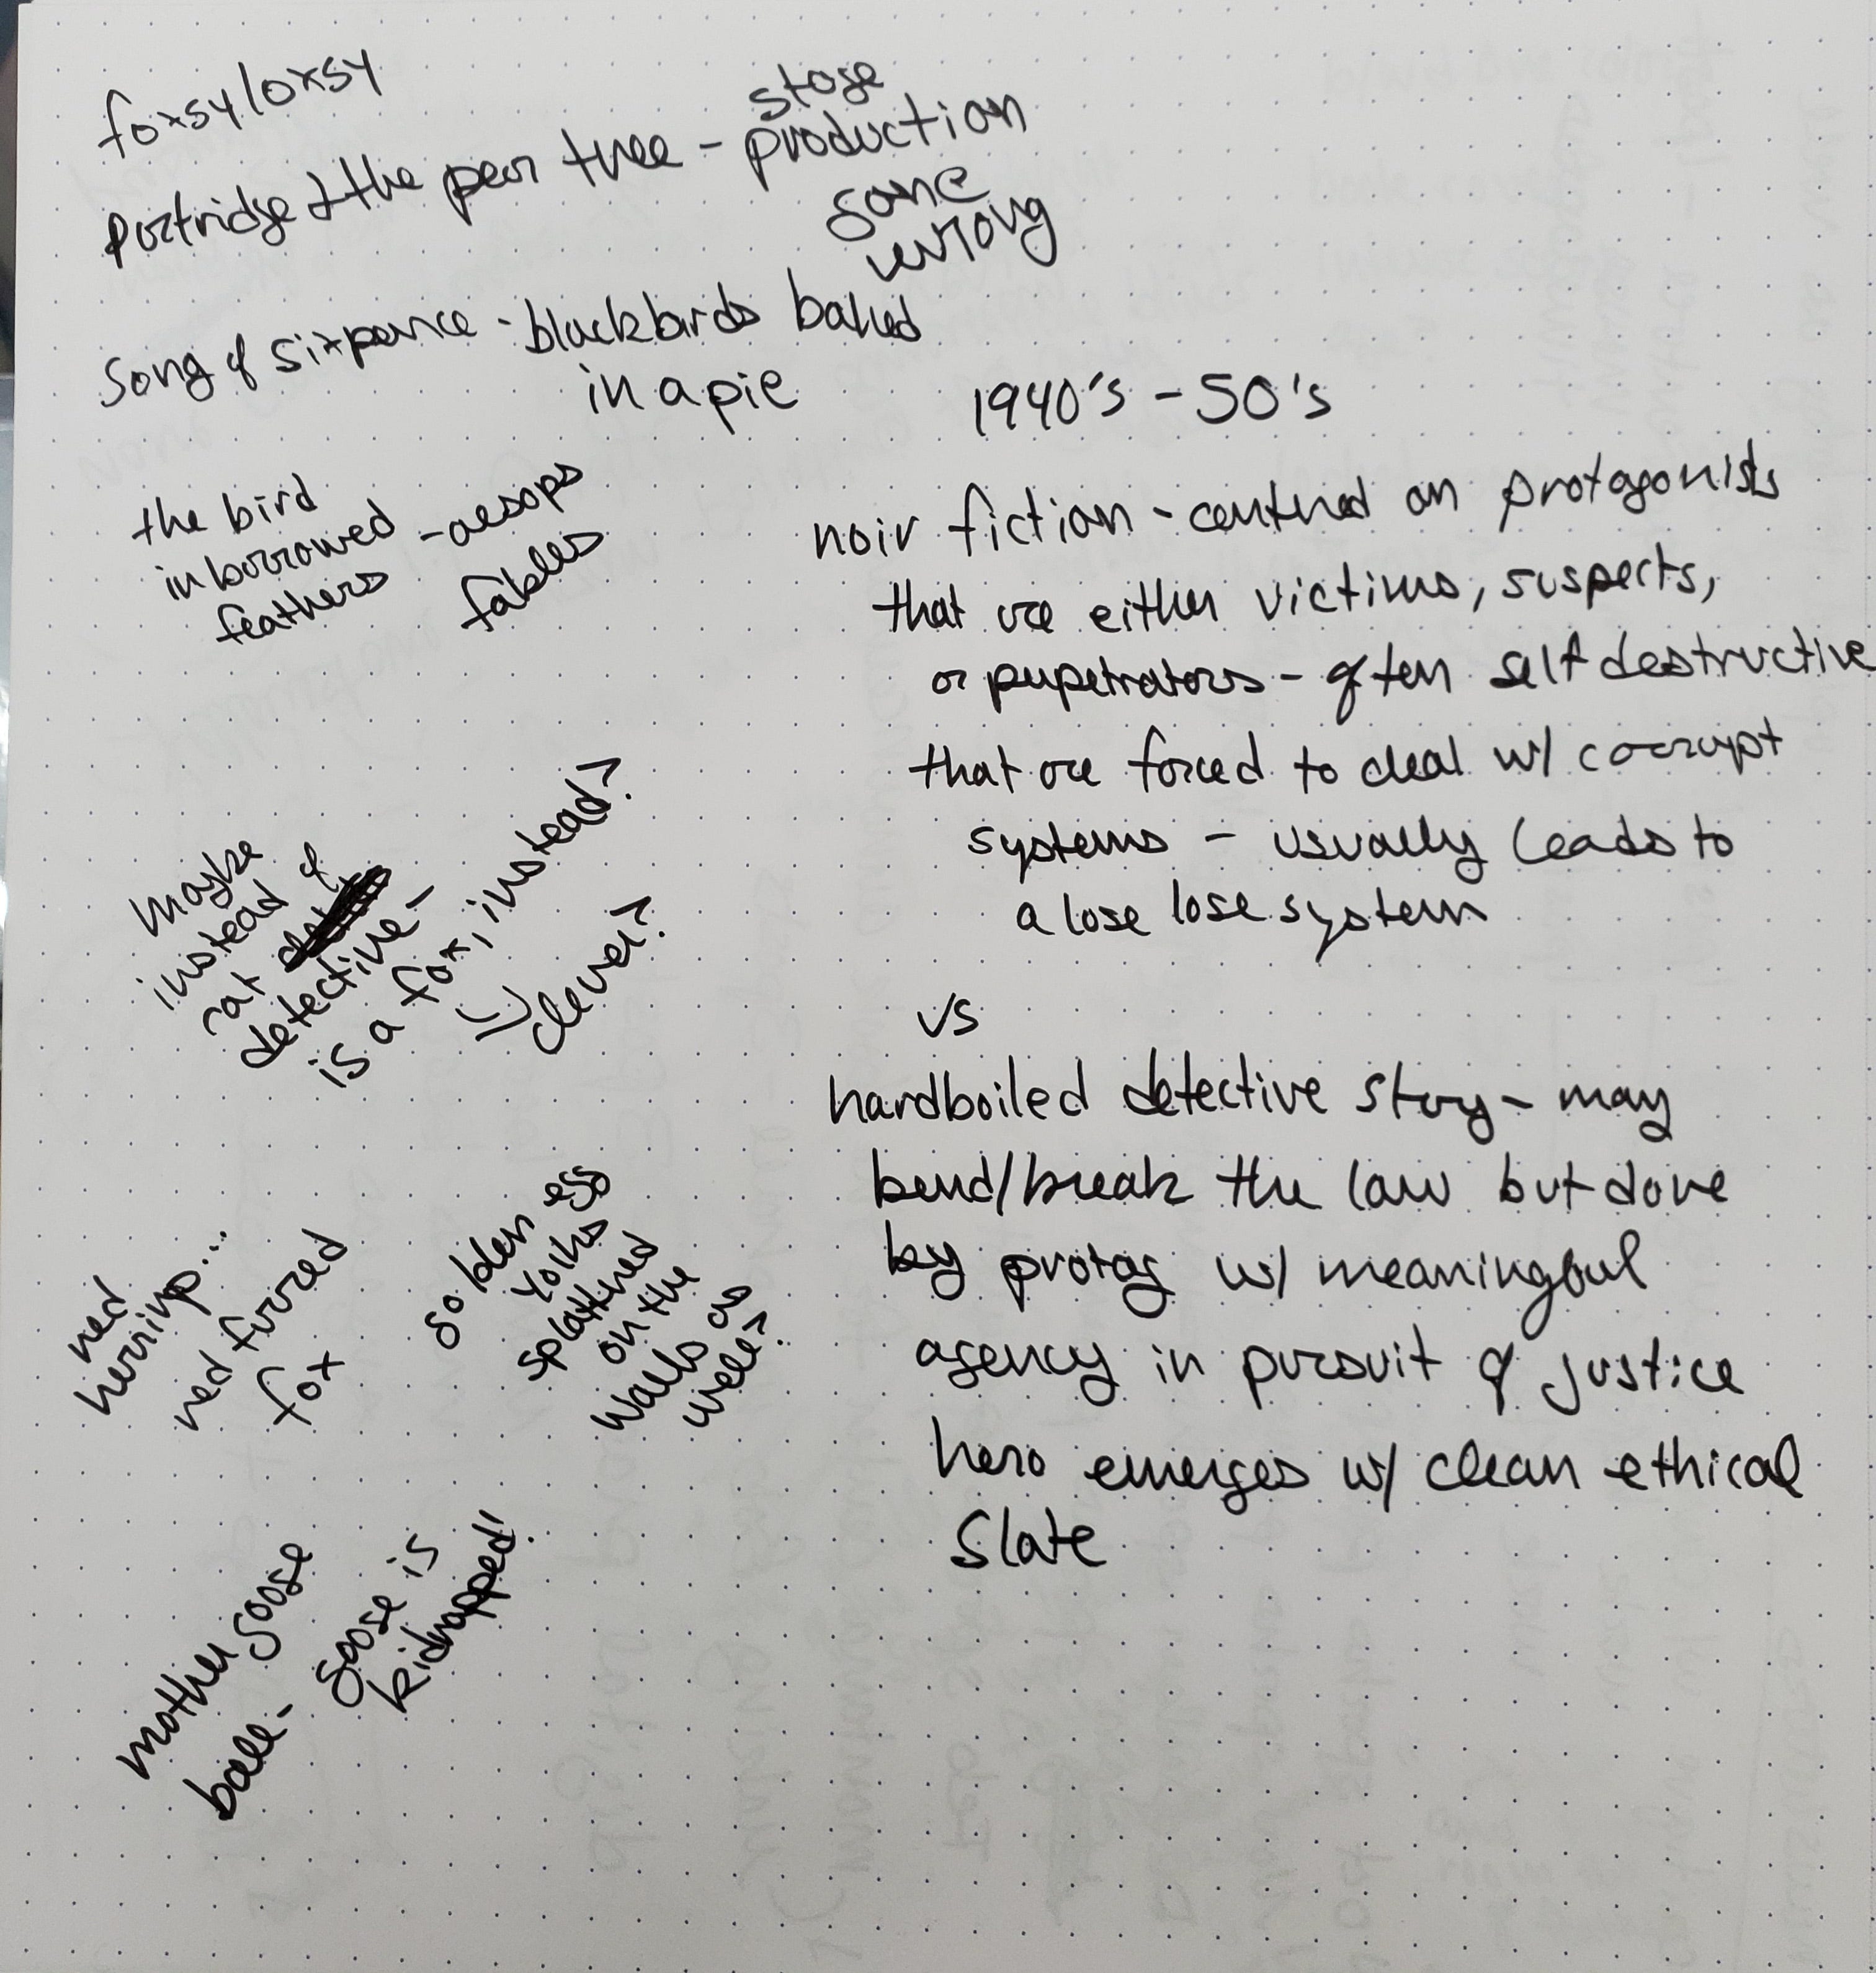 foxsy loxsy
stage
partridge & the pear tree - production
gone
wrong
song of sixpence - blackbirds baked
in a pie
1940's - 50's
the bird
in borrowed - aesops
feathers fables
noir fiction - centred on protagonists
that are either victims, suspects,
or perpetrators - often self destructive
that are forced to deal w/ corrupt
systems - usually leads to
a lose lose system
maybe
instead of
cat
detective -
is a fox, instead?
clever?
vs
hardboiled detective story - may
bend/break the law but done
by protag w/ meaningful
agency in pursuit of justice
hero emerges w/ clean ethical
slate
red
herring...
red furred
fox
golden egg
yolks
splattered
on the
walls as
well?
mother goose
ball - goose is
kidnapped!